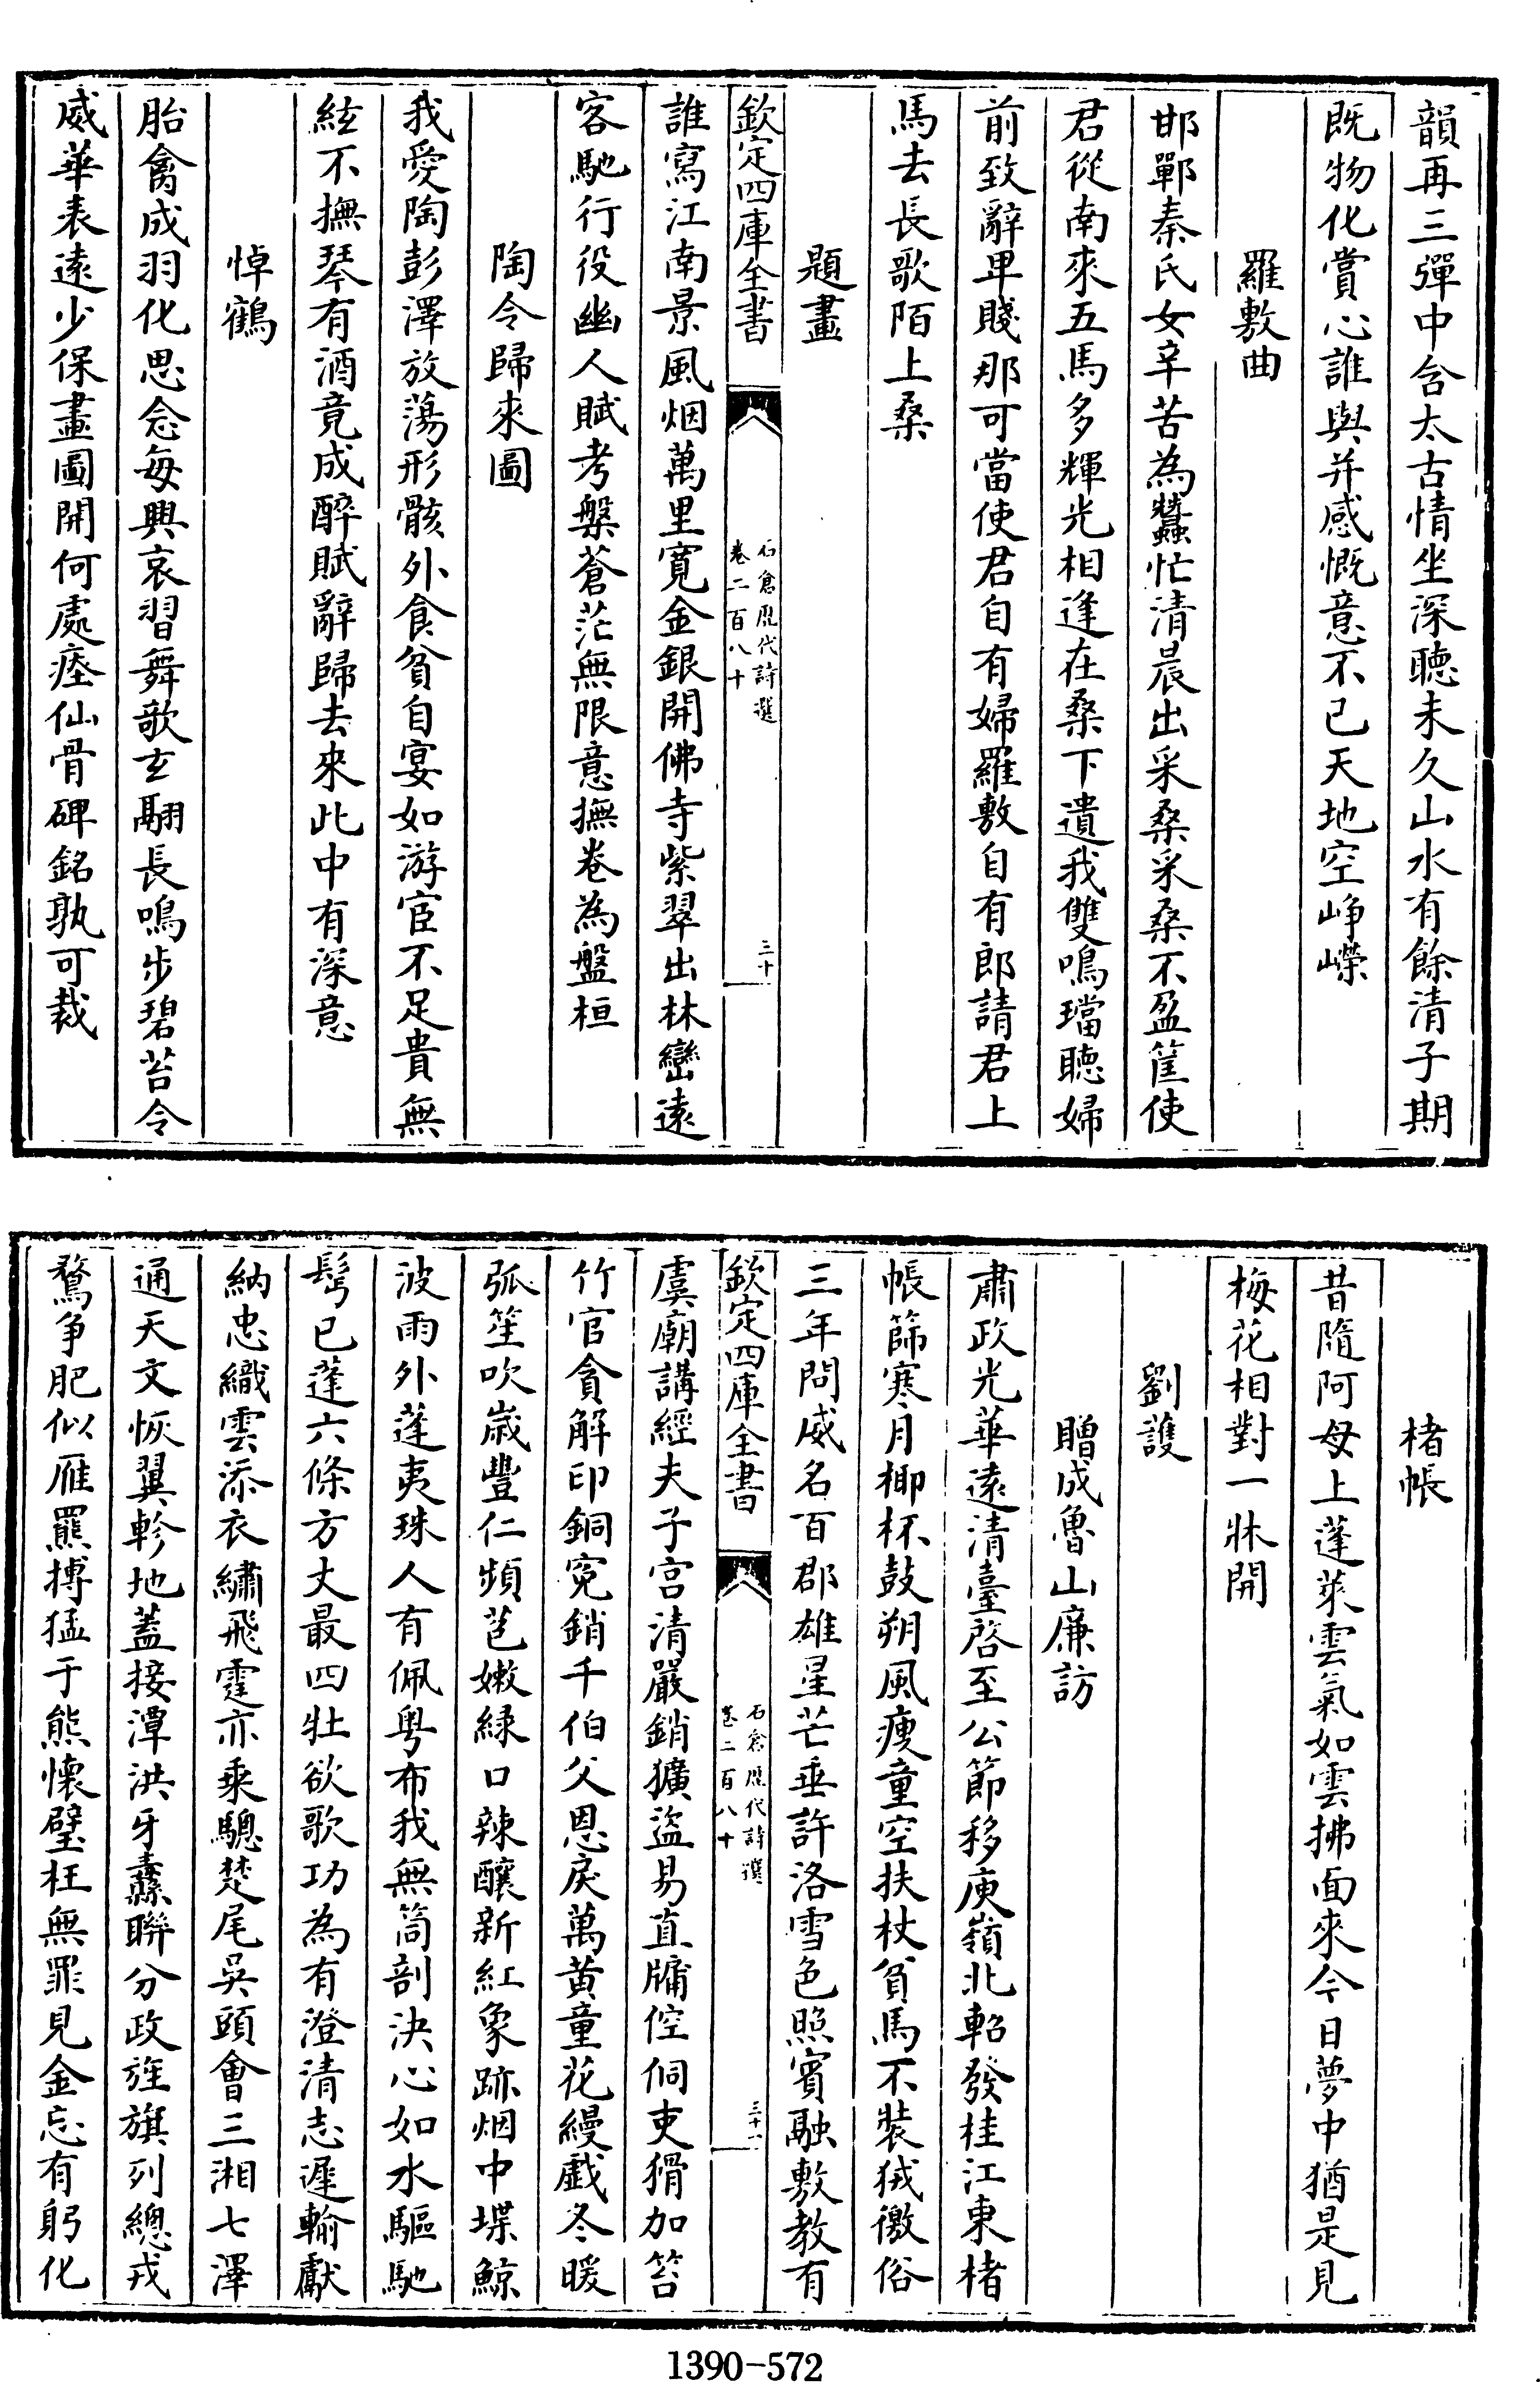 韻再三彈中含太古情坐深聽未久山水有餘清子期
既物化賞心誰與并感慨意不已天地空崢嶸
羅敷曲
邯鄲秦氏女辛苦為蠶忙清晨出采桑采桑不盈筐使
君從南來五馬多輝光相逢在桑下遺我雙鳴璫聽婦
前致辭卑賤那可當使君自有婦羅敷自有郎請君上
馬去長歌陌上桑
題畫
欽定四庫全書
石倉歷代詩選
卷二百八十
三十
誰寫江南景風烟萬里寛金銀開佛寺紫翠出林巒遠
客馳行役幽人賦考槃蒼茫無限意撫卷為盤桓
陶令歸來圖
我愛陶彭澤放蕩形骸外食貧自宴如游宦不足貴無
絃不撫琴有酒竟成醉賦辭歸去來此中有深意
悼鶴
胎禽成羽化思念每興哀習舞歌玄翮長鳴步碧苔令
威華表遠少保畫圖開何處瘗仙骨碑銘孰可裁
楮帳
昔隨阿母上蓬萊雲氣如雲拂面來今日夢中猶是見
梅花相對一牀開
劉護
贈成魯山廉訪
肅政光華遠清臺啓至公節移庾嶺北軺發桂江東楮
帳篩寒月柳杯鼓朔風瘦童空扶杖貧馬不裝狨徼俗
三年問威名百郡雄星芒垂許洛雪色照賓融敷教有
欽定四庫全書
石倉歷代詩選
卷二百八十
三十一
虞廟講經夫子宫清嚴銷獷盜易直牗倥侗吏猾加笞
竹官貪解印銅寃銷千伯父恩戾萬黄童花縵戯冬暖
弧笙吹嵗豐仁頻苞嫩緑口辣釀新紅象跡烟中堞鯨
波雨外蓬夷珠人有佩粤布我無筒剖決心如水驅馳
髩已蓬六條方丈最四牡欲歌功為有澄清志遲輸獻
納忠織雲添衣繡飛霆亦乘驄楚尾吳頭會三湘七澤
通天文恢翼軫地蓋接潭洪牙纛聨分政旌旗列總戎
鶩爭肥似雁羆搏猛于熊懷璧枉無罪見金忘有躬化
1390-572